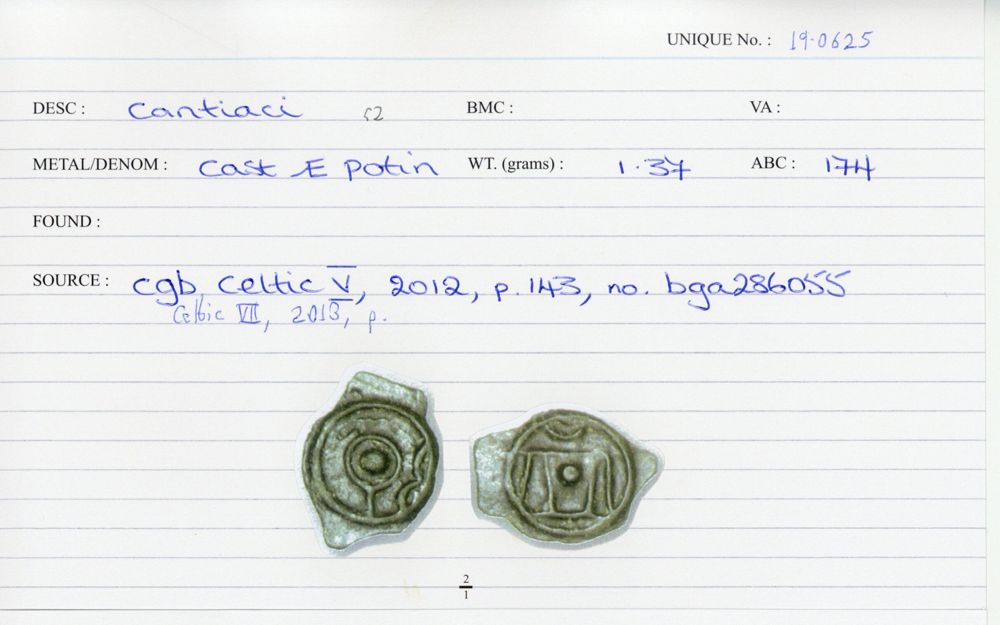 UNIQUE No. : 19-0625
DESC : Cantiaci 52 BMC : VA :
METAL/DENOM : Cast Æ potin WT. (grams) : 1.37 ABC : 174
FOUND :
SOURCE : cgb, Celtic V, 2012, p. 143, no. bga286055
Celtic VII, 2013, p.
2
1